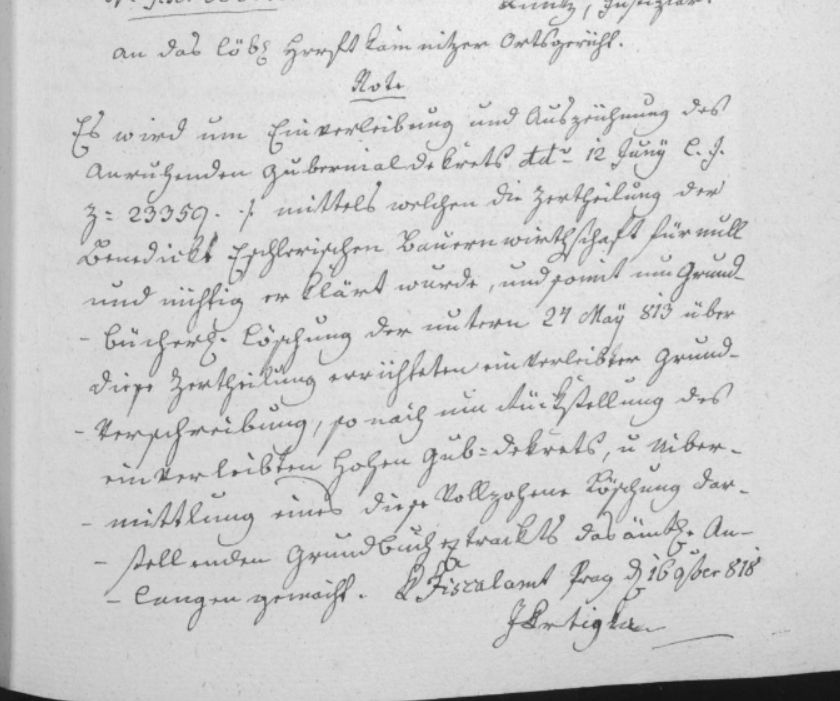 Kuntz, Justiziär.
an das löbl Hrrsft Kamnitzer Ortsgericht.
Note
Es wird um Einverleibung und Auszeichnung des
Anruhenden Gubernialdekrets ddto 12 Juny l. J.
Z: 23359. ·/. mittels welchen die Zertheilung der
Benedickt Eschlerischen Bauernwirthschaft für null
und nichtig erklärt wurde, und somit um Grund-
- bücherl. Löschung der untern 24 May 813 über
diese Zertheilung errichteten einverleibter Grund-
- Verschreibung, so nach um Rückstellung des
einverleibten hohen Gub: dekrets, u Uiber-
- mittlung eines diese Vollzohene Löschung dar-
- stellenden Grundbuchextrackts das ämtl. An-
- langen gemacht. K Fiscalamt Prag d 16 9ber 818